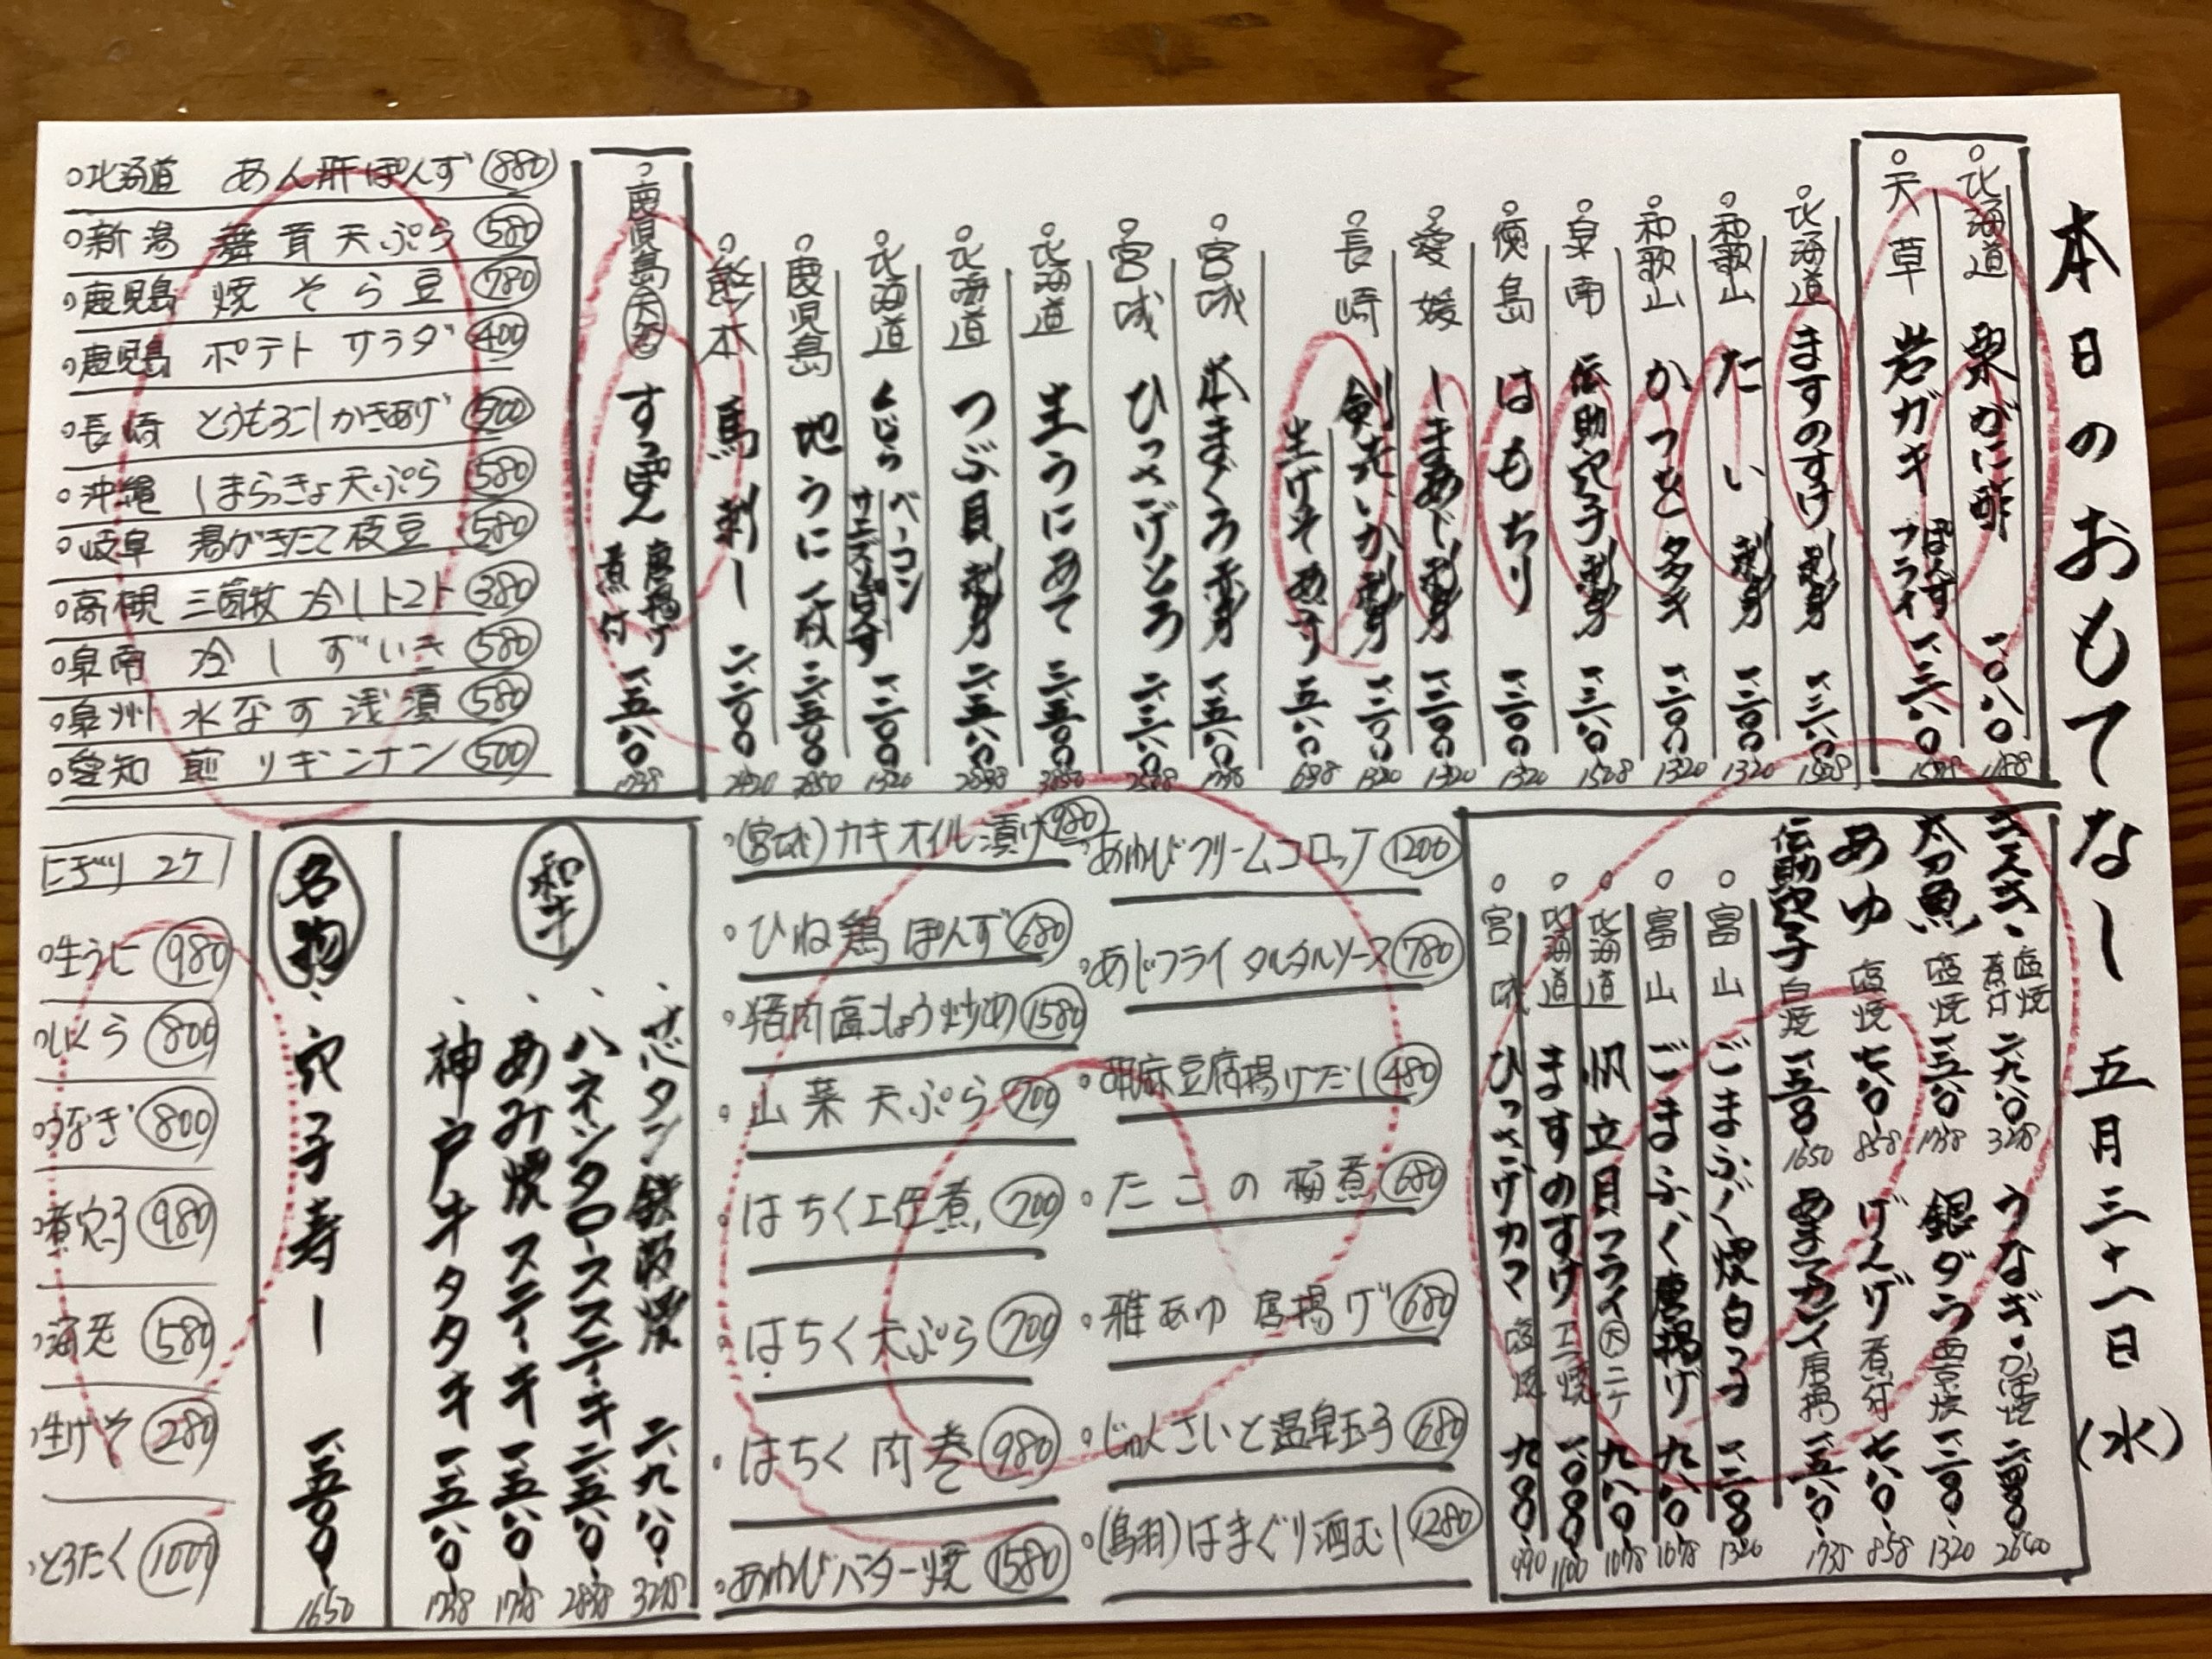 本日のおもてなし 五月三十一日(水)
北海道 栗がに酢 一、〇八〇 1188
天草 岩ガキ ぽんず フライ 一、三八〇 1518
北海道 ますのすけ 刺身 一、三八〇 1518
和歌山 たい 刺身 一、二〇〇 1320
和歌山 かつをタタキ 一、二〇〇 1320
泉南 伝助穴子 刺身 一、三八〇 1518
徳島 はもちり 一、二〇〇 1320
愛媛 しまあじ 刺身 一、二〇〇 1320
長崎 剣先いか 刺身 一、二〇〇 1320
生げそ 五八〇 638
宮城 本まぐろ赤身 一、五八〇 1738
宮城 ひっさげとろ 二、三八〇
北海道 生うにあて 三、五〇〇 3850
北海道 つぶ貝 刺身 二、五八〇 2838
北海道 くじら ベーコン サエズリぽんず 一、二〇〇 1320
鹿児島 地うに一枚 三、五〇〇 3850
熊本 馬刺し 二、二〇〇 2420
鹿児島 すっぽん 唐揚げ 煮付 一、五八〇 1738
北海道 あん肝ぽんず 880
新潟 舞茸天ぷら 580
鹿児島 焼そら豆 780
鹿児島 ポテトサラダ 400
長崎 とうもろこしかきあげ 700
沖縄 しまらっきょ天ぷら 580
岐阜 湯がきたて枝豆 580
高槻 三箇牧 冷しトマト 380
泉南 冷しずいき 580
泉州 水なす浅漬 580
愛知 煎りギンナン 500
きずき 塩焼 煮付 二、九八〇 3278
太刀魚 塩焼 一、五八〇 1738
あゆ 塩焼 七八〇 858
伝助穴子 白焼 一、五〇〇 1650
うなぎ かば焼 二、四〇〇 2640
銀ダラ 西京焼 一、二〇〇 1320
げんげ 煮付 七八〇 858
あまてカレイ 唐揚 一、五八〇 1738
富山 ごまふぐ焼白子 一、二〇〇 1320
富山 ごまふぐ唐揚げ 九八〇 1078
北海道 帆立貝フライ 大 二ケ 九八〇 1078
北海道 ますのすけ 一、〇〇〇 1100
宮城 ひっさげカマ 塩焼 九〇〇 990
あわびクリームコロッケ 1200
あじフライ タルタルソース 780
胡麻豆腐揚げだし 480
たこの梅煮 680
稚あゆ 唐揚げ 680
じゅんさいと温泉玉子 680
(鳥羽)はまぐり酒むし 1280
(宮城)カキオイル漬け 980
ひね鶏 ぽんず 680
猪肉塩こしょう炒め 1580
山菜天ぷら 700
はちく土佐煮 700
はちく天ぷら 700
はちく肉巻 980
あわびバター焼 1580
和牛
芯タン鉄板焼 二、九八〇 3278
ハネシタロースステーキ 二、五八〇 2838
あみ焼ステーキ 一、五八〇 1738
神戸牛タタキ 一、五八〇 1738
名物
穴子寿し 一、五〇〇 1650
にぎり 2ケ
生うに 980
いくら 800
うなぎ 800
煮穴子 980
海老 580
生げそ 280
とろたく 1000